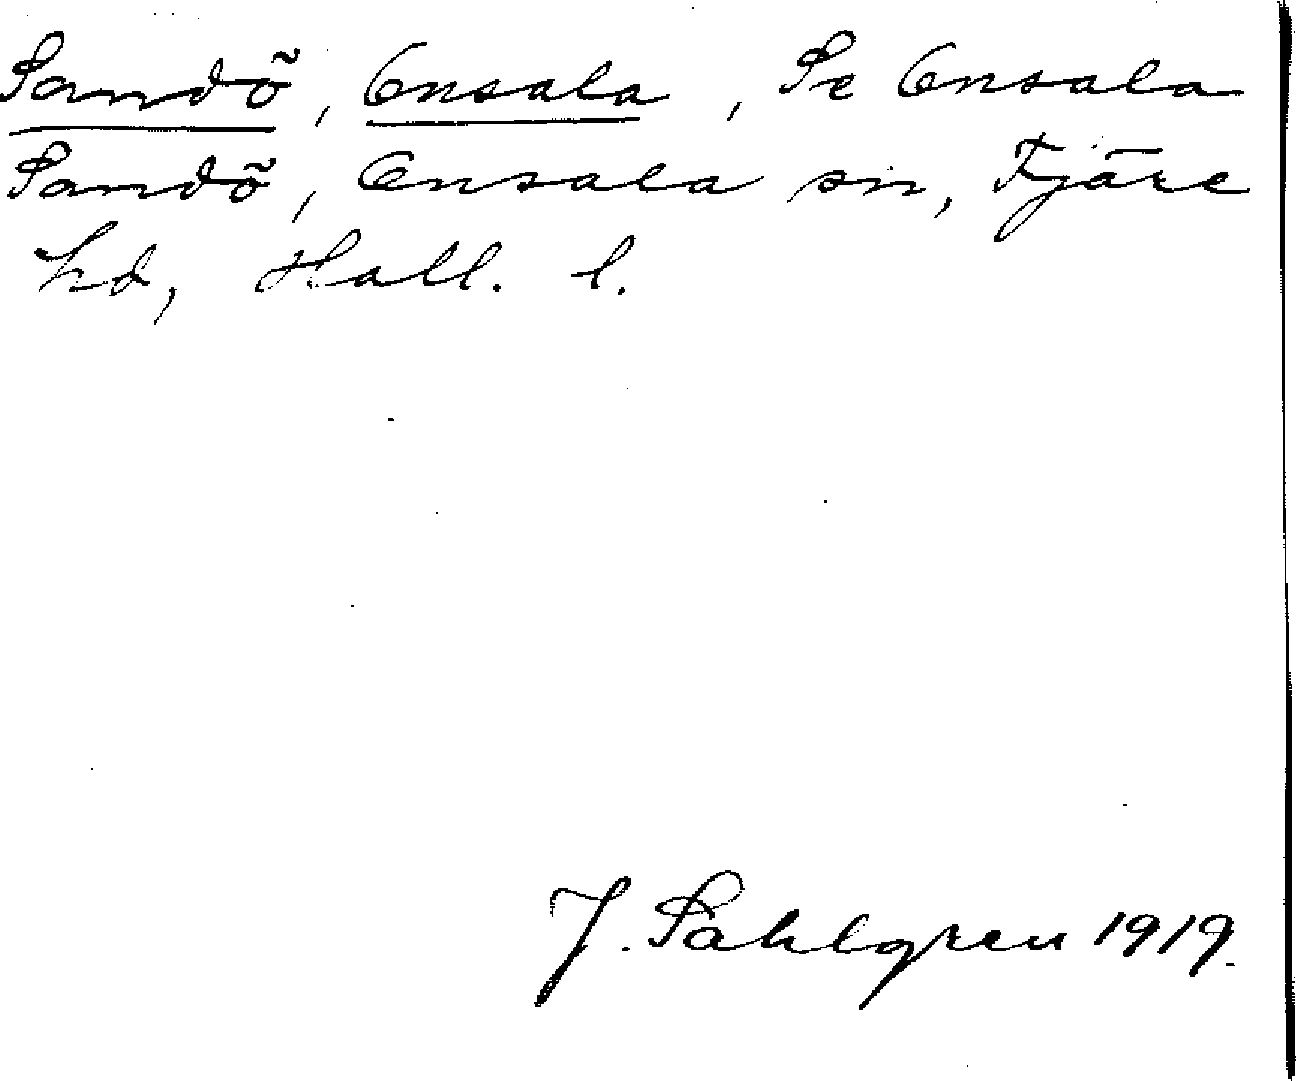 Sandö, Onsala, Se Onsala
Sandö, Onsala sn, Fjäre
hd, Hall. l.
J. Sahlgren 1919.